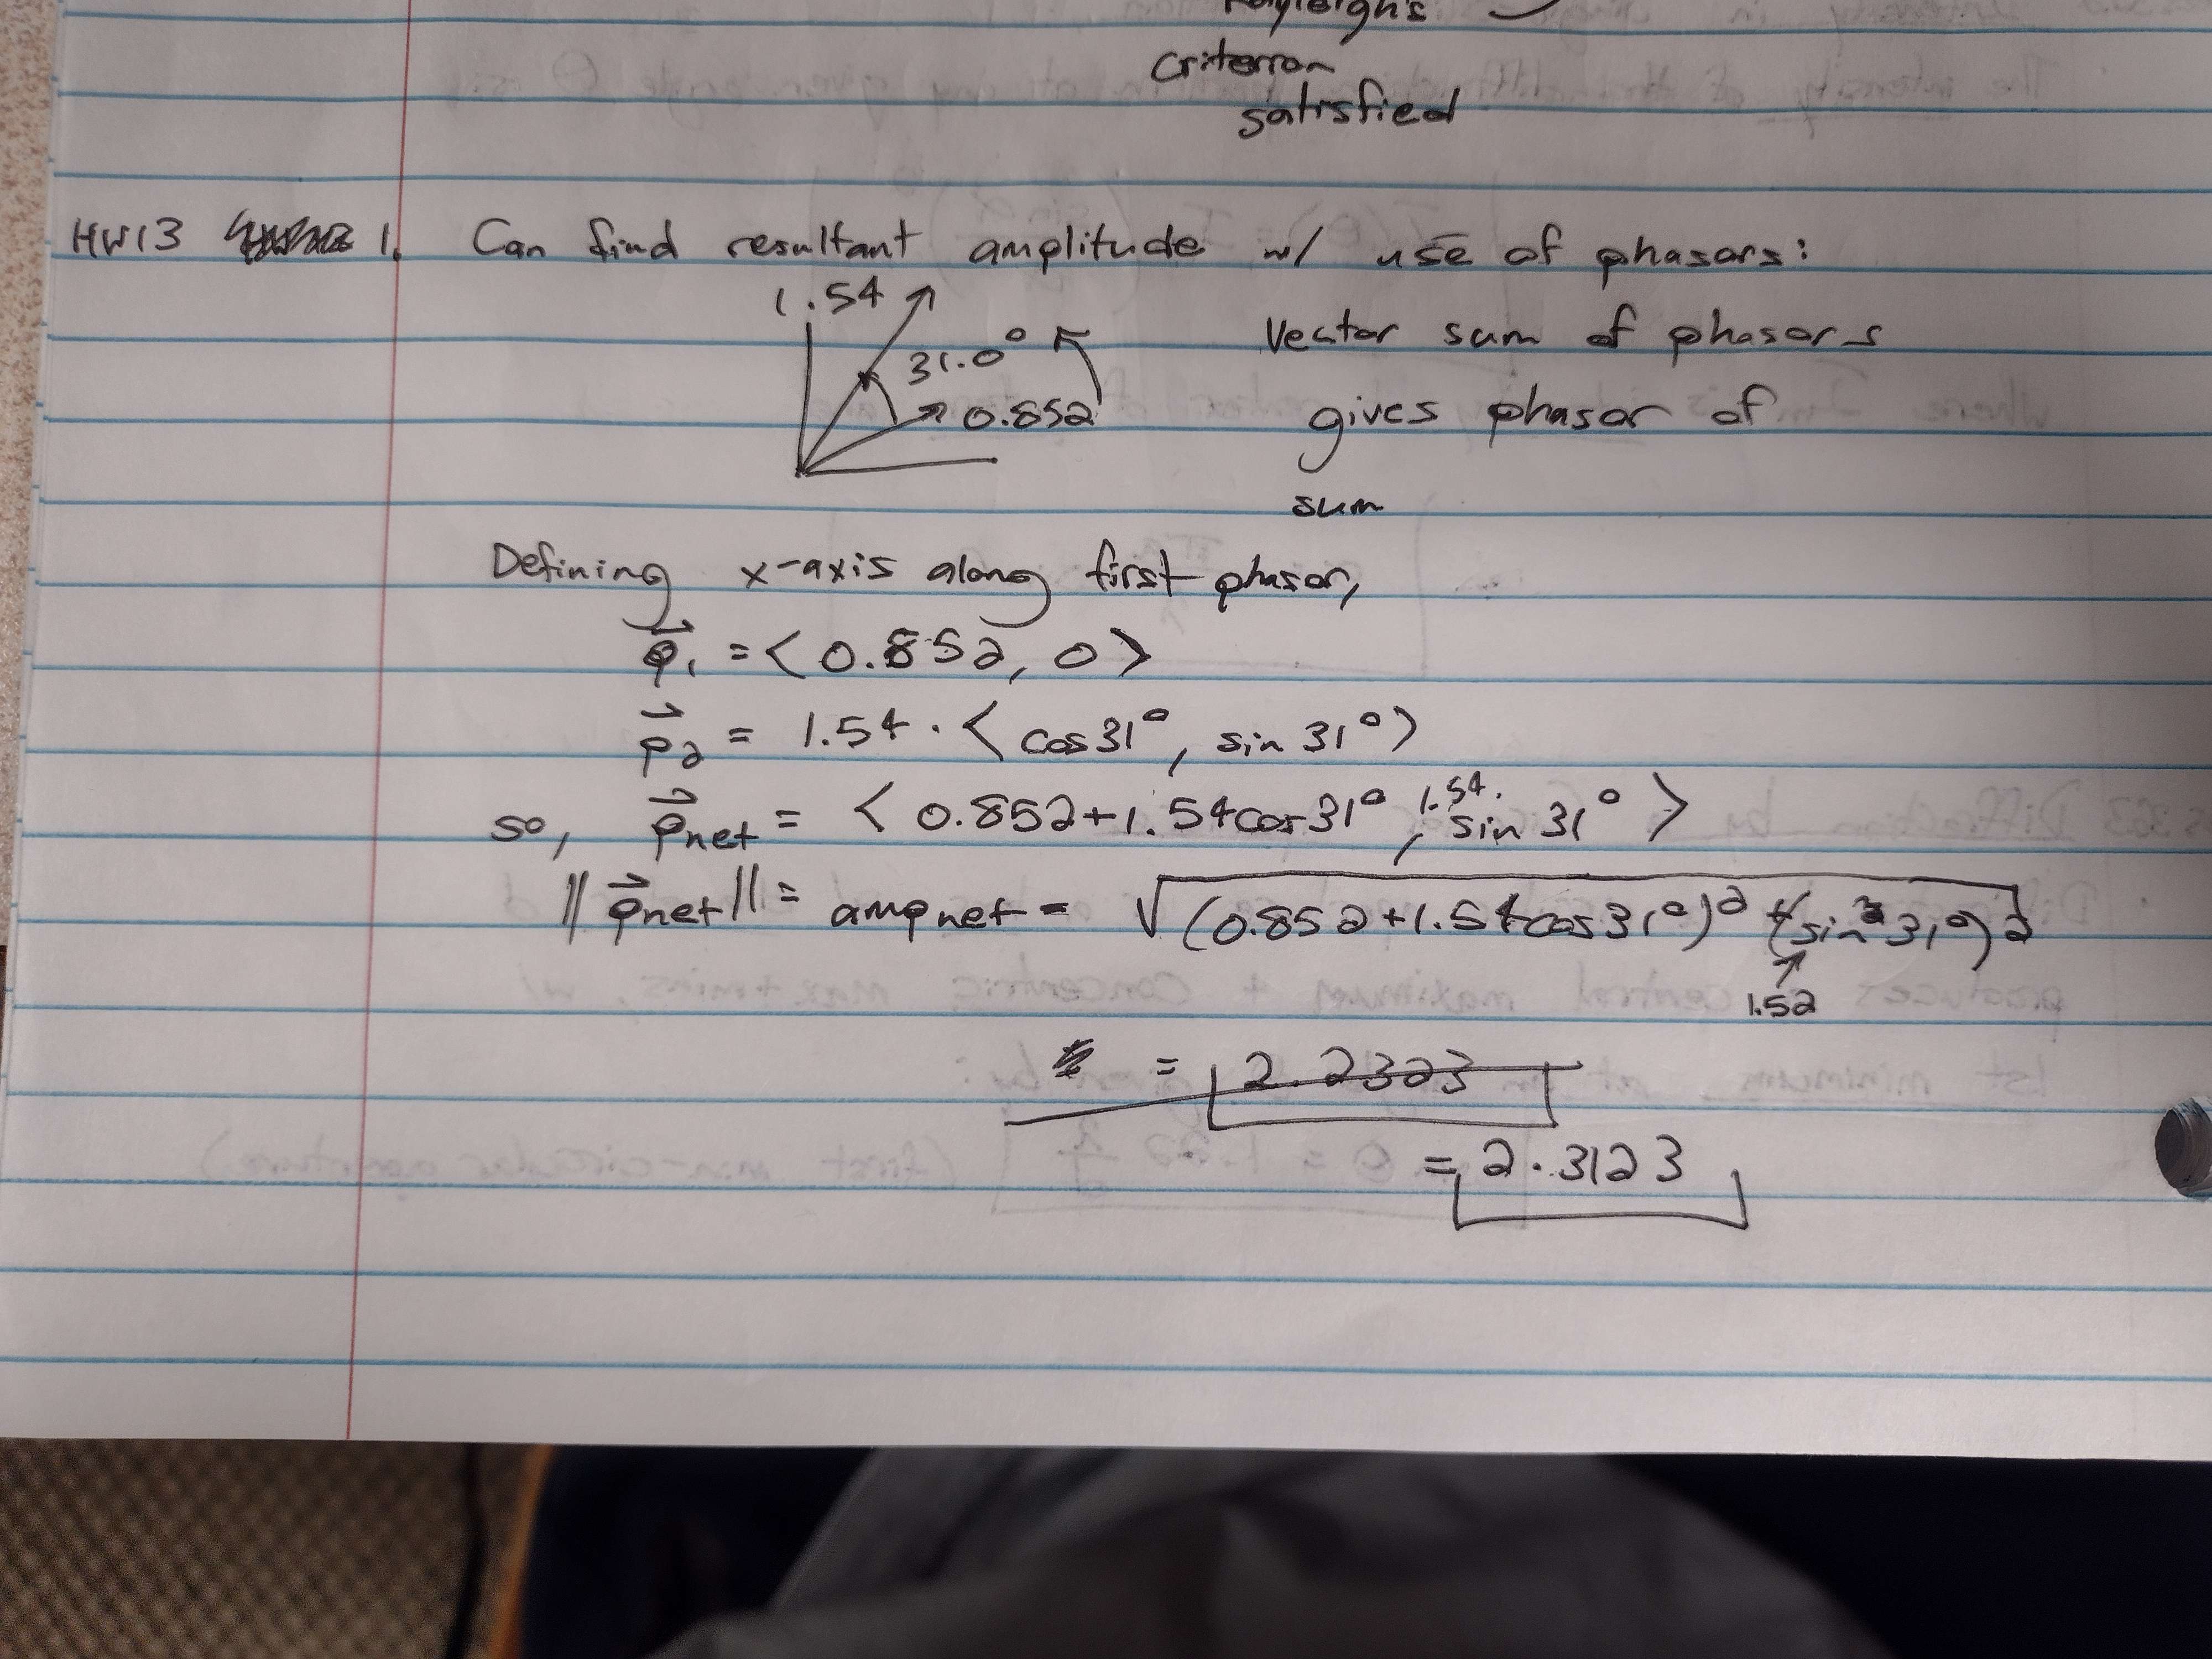 Rayleigh's
criterion
satisfied
HW13 1. Can find resultant amplitude w/ use of phasors:
1.54
31.0°
0.852
Vector sum of phasors
gives phasor of
sum
Defining x-axis along first phasor,
p⃗₁ = <0.852, 0>
p⃗₂ = 1.54 · <cos31°, sin 31°>
so, p⃗net = <0.852+1.54cos31°, 1.54· sin 31°>
||p⃗net|| = ampnet = √(0.852+1.54cos31°)² + (sin 31°)²
1.52
= 2.2323
= 2.3123